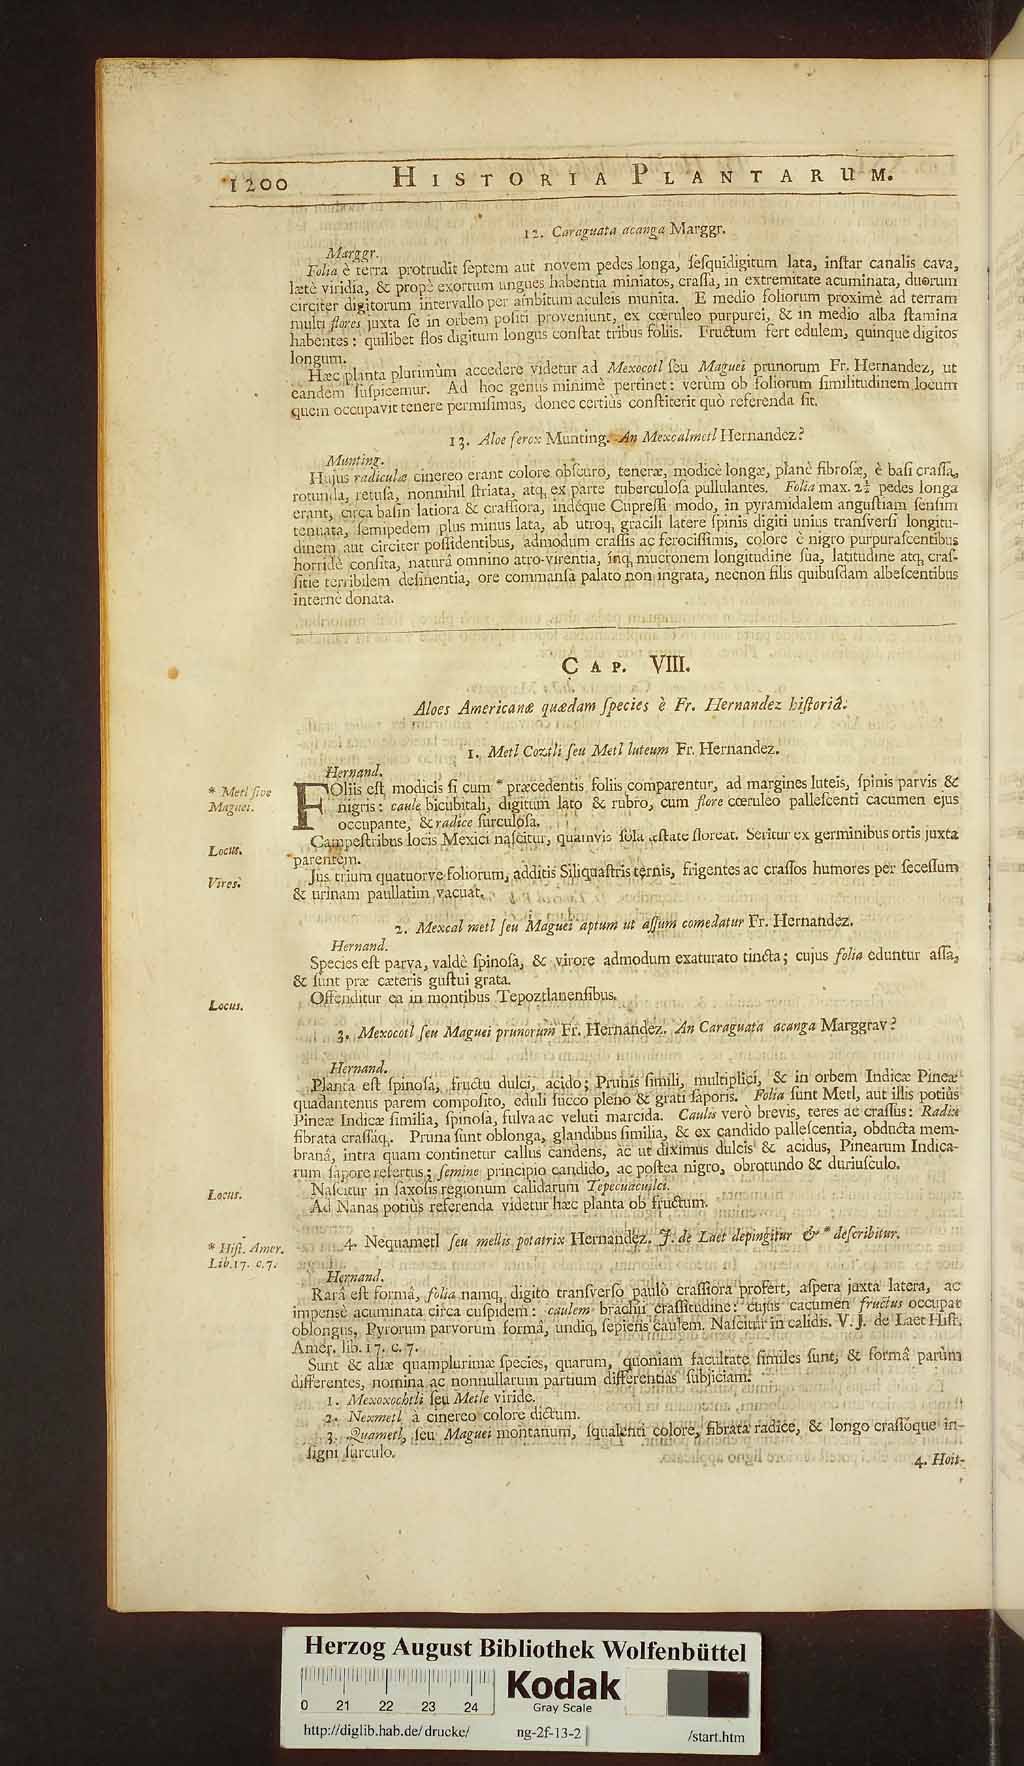 1200 HISTORIA PLANTARUM.
12. Caraguata acanga Marggr.
Marggr.
Folia è terra protrudit ſeptem aut novem pedes longa, ſeſquidigitum lata, inſtar canalis cava,
lætè viridia, & propè exortum ungues habentia miniatos, craſſa, in extremitate acuminata, duorum
circiter digitorum intervallo per ambitum aculeis munita. E medio foliorum proximè ad terram
multi flores juxta ſe in orbem poſiti proveniunt, ex cœruleo purpurei, & in medio alba ſtamina
habentes: quilibet flos digitum longus conſtat tribus foliis. Fructum fert edulem, quinque digitos
longum.
Hæc planta plurimùm accedere videtur ad Mexocotl ſeu Maguei prunorum Fr. Hernandez, ut
eandem ſuſpicemur. Ad hoc genus minimè pertinet: verùm ob foliorum ſimilitudinem locum
quem occupavit tenere permiſimus, donec certiùs conſtiterit quò referenda ſit.
13. Aloe ferox Munting. An Mexcalmetl Hernandez?
Munting.
Hujus radiculæ cinereo erant colore obſcuro, teneræ, modicè longæ, planè fibroſæ, è baſi craſſa,
rotunda, retuſa, nonnihil ſtriata, atq, ex parte tuberculoſa pullulantes. Folia max. 2½ pedes longa
erant, circa baſin latiora & craſſiora, indéque Cupreſſi modo, in pyramidalem anguſtiam ſenſim
tenuata, ſemipedem plus minus lata, ab utroq, gracili latere ſpinis digiti unius tranſverſi longitu-
dinem aut circiter poſſidentibus, admodum craſſis ac ferociſſimis, colore è nigro purpuraſcentibus
horridè conſita, naturâ omnino atro-virentia, inq, mucronem longitudine ſua, latitudine atq, craſ-
ſitie terribilem deſinentia, ore commanſa palato non ingrata, necnon filis quibuſdam albeſcentibus
internè donata.
CAP. VIII.
Aloes Americanæ quædam ſpecies è Fr. Hernandez hiſtoriâ.
1. Metl Coztli ſeu Metl luteum Fr. Hernandez.
Hernand.
* Metl ſive
Maguei.
FOliis eſt modicis ſi cum * præcedentis foliis comparentur, ad margines luteis, ſpinis parvis &
nigris: caule bicubitali, digitum lato & rubro, cum flore cœruleo palleſcenti cacumen ejus
occupante, & radice ſurculoſa.
Locus.
Campeſtribus locis Mexici naſcitur, quamvis ſola æſtate floreat. Seritur ex germinibus ortis juxta
parentem.
Vires.
Jus trium quatuorve foliorum, additis Siliquaſtris ternis, frigentes ac craſſos humores per ſeceſſum
& urinam paullatim vacuat.
2. Mexcal metl ſeu Maguei aptum ut aſſum comedatur Fr. Hernandez.
Hernand.
Species eſt parva, valdè ſpinoſa, & virore admodum exaturato tincta; cujus folia eduntur aſſa,
& ſunt præ cæteris guſtui grata.
Locus.
Offenditur ea in montibus Tepoztlanenſibus.
3. Mexocotl ſeu Maguei prunorum Fr. Hernandez. An Caraguata acanga Marggrav?
Hernand.
Planta eſt ſpinoſa, fructu dulci, acido; Prunis ſimili, multiplici, & in orbem Indicæ Pineæ
quadantenus parem compoſito, eduli ſucco pleno & grati ſaporis. Folia ſunt Metl, aut illis potiùs
Pineæ Indicæ ſimilia, ſpinoſa, fulva ac veluti marcida. Caulis verò brevis, teres ac craſſus: Radix
fibrata craſſaq,. Pruna ſunt oblonga, glandibus ſimilia, & ex candido palleſcentia, obducta mem-
branâ, intra quam continetur callus candens, ac ut diximus dulcis & acidus, Pinearum Indica-
rum ſapore refertus; ſemine principio candido, ac poſtea nigro, obrotundo & duriuſculo.
Locus.
Naſcitur in ſaxoſis regionum calidarum Tepecuacuilci.
Ad Nanas potiùs referenda videtur hæc planta ob fructum.
4. Nequametl ſeu mellis potatrix Hernandez. J. de Laet depingitur & * deſcribitur.
* Hiſt. Amer.
Lib. 17. c. 7.
Hernand.
Rarâ eſt formâ, folia namq, digito tranſverſo paulò craſſiora profert, aſpera juxta latera, ac
impensè acuminata circa cuſpidem: caulem brachii craſſitudine: cujus cacumen fructus occupat
oblongus, Pyrorum parvorum formâ, undiq, ſepiens caulem. Naſcitur in calidis. V. J. de Laet Hiſt.
Amer. lib. 17. c. 7.
Sunt & aliæ quamplurimæ ſpecies, quarum, quoniam facultate ſimiles ſunt, & formâ parùm
differentes, nomina ac nonnullarum partium differentias ſubjiciam.
1. Mexoxochtli ſeu Metle viride.
2. Nexmetl à cinereo colore dictum.
3. Quametl, ſeu Maguei montanum, ſqualenti colore, fibrata radice, & longo craſſoque in-
ſigni ſurculo.
4. Hoit-
Herzog August Bibliothek Wolfenbüttel
Kodak
Gray Scale
0 21 22 23 24
http://diglib.hab.de/drucke/ ng-2f-13-2 /start.htm